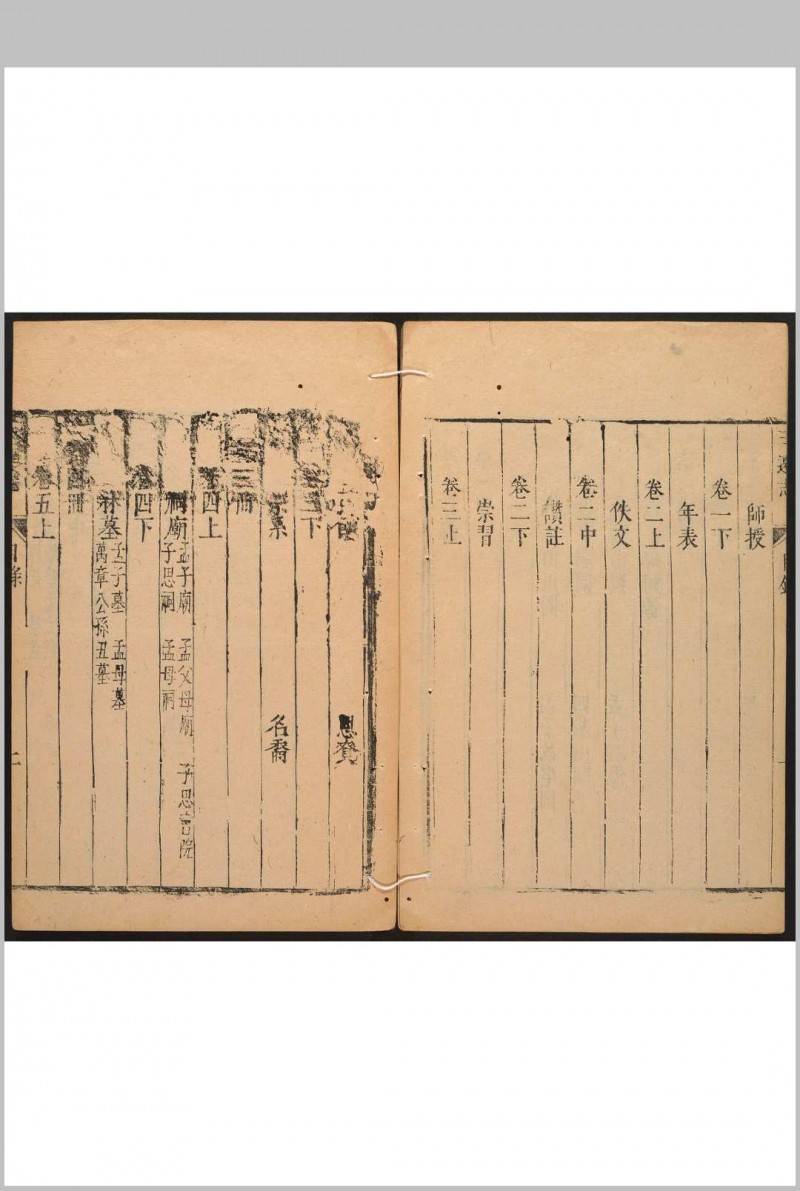 師授
卷一下
年表
卷二上
佚文
卷二中
讚註
卷二下
崇習
卷三上
恩賚
三下
宗系 名裔
三冊
四上
祠廟 孟子廟 孟父母廟 子思書院
子思祠 孟母祠
卷四下
林墓 孟子墓 孟母墓
萬章公孫丑墓
冊
卷五上
目錄
二